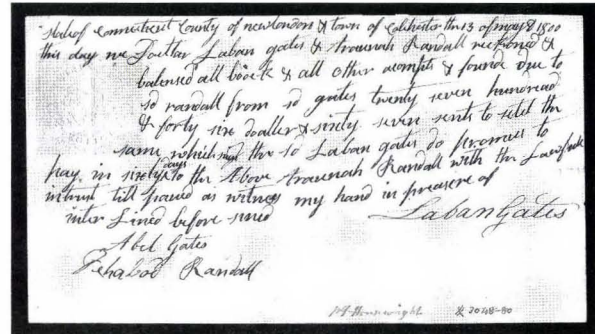 State of Connecticut County of newlondon & town of Colchester the 13 of may 1800
this day we Docttor Laban gates & Araunah Randall reckoned &
balensed all book & all other acompts & found due to
sd randall from sd gates twenty seven hundread
& forty six doaller & sixty seven sents to setel the
same which the sd Laban gates do promes to
pay in sixty days to the Above Araunah Randall with the Lawfull
intrust till paied as witness my hand in preasence of
inter Lined before sined
Laban Gates
Abel Gates
Jehabod Randall
20748-80